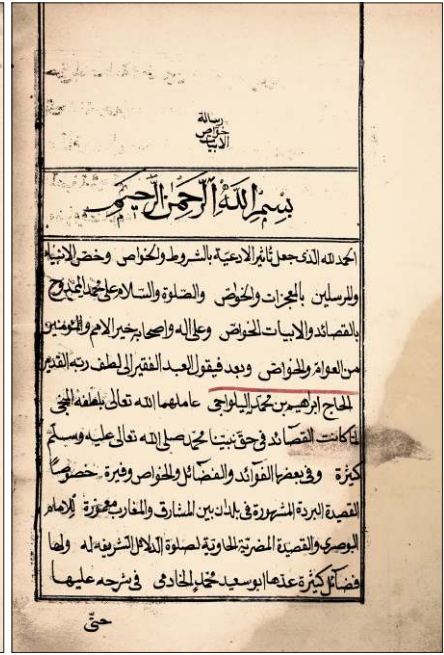 رسالة
خواص
الابيات
بسم الله الرحمن الرحيم
الحمد لله الذى جعل تأثير الادعية بالشروط والخواص وخص الانبياء
والمرسلين بالمعجزات والخواص والصلوة والسلام على محمد الممدوح
بالقصائد والابيات الخواص وعلى اله واصحابه خير الامم والمؤمنين
من العوام والخواص وبعد فيقول العبد الفقير الى لطف ربه القدير
الحاج ابراهيم بن محمد اليلواجى عاملهما الله تعالى بلطفه الخفى
لما كانت القصائد فى حق نبينا محمد صلى الله تعالى عليه وسلم
كثيرة وفى بعضها الفوائد والفضائل والخواص وفيرة خصوصا
القصيدة البردة المشهورة فى بلدان بين المشارق والمغارب معمورة للامام
البوصرى والقصيدة المضرية الحاوية لصلوة الدلائل الشريفة له ولها
فضائل كثيرة عدها ابو سعيد محمد الخادمى فى شرحه عليها
حتى